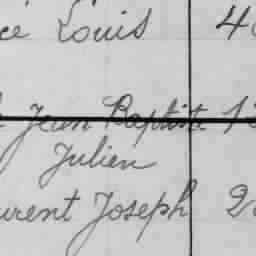 Louis 4
Jean Baptiste 1
Julien
urent Joseph 2